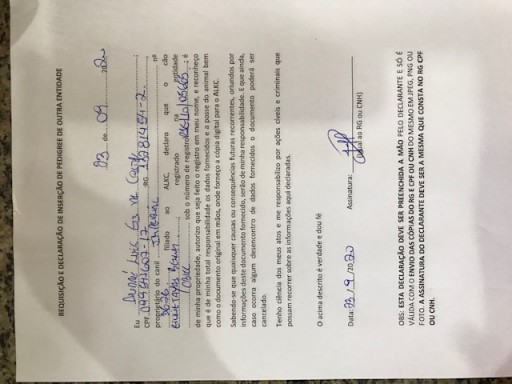 REQUISIÇÃO E DECLARAÇÃO DE INSERÇÃO DE PEDIGREE DE OUTRA ENTIDADE
03 de 09 2020
Eu
CPF RG nº
proprietário do canil
filiado ao ALKC, declaro que o cão
registrado na entidade
sob o número de registro
de minha propriedade, autorizo que seja feito o registro em meu nome, e reconheço
que é de minha total responsabilidade os dados fornecidos e a posse do animal bem
como o documento original em mãos, onde forneço a cópia digital para o ALKC.
Sabendo-se que quaisquer causas ou consequências futuras recorrentes, oriundos por
informações deste documento fornecido, serão de minha responsabilidade. E que ainda,
caso ocorra algum desencontro de dados fornecidos o documento poderá ser
cancelado.
Tenho ciência dos meus atos e me responsabilizo por ações cíveis e criminais que
possam recorrer sobre as informações aqui declaradas.
O acima descrito é verdade e dou fé
Data: 03/9/2020 Assinatura:
(igual ao RG ou CNH)
OBS: ESTA DECLARAÇÃO DEVE SER PREENCHIDA A MÃO PELO DECLARANTE E SÓ É
VÁLIDA COM O ENVIO DAS CÓPIAS DO RG E CPF OU CNH DO MESMO EM JPEG, PNG OU
FOTO. A ASSINATURA DO DECLARANTE DEVE SER A MESMA QUE CONSTA NO RG CPF
OU CNH.